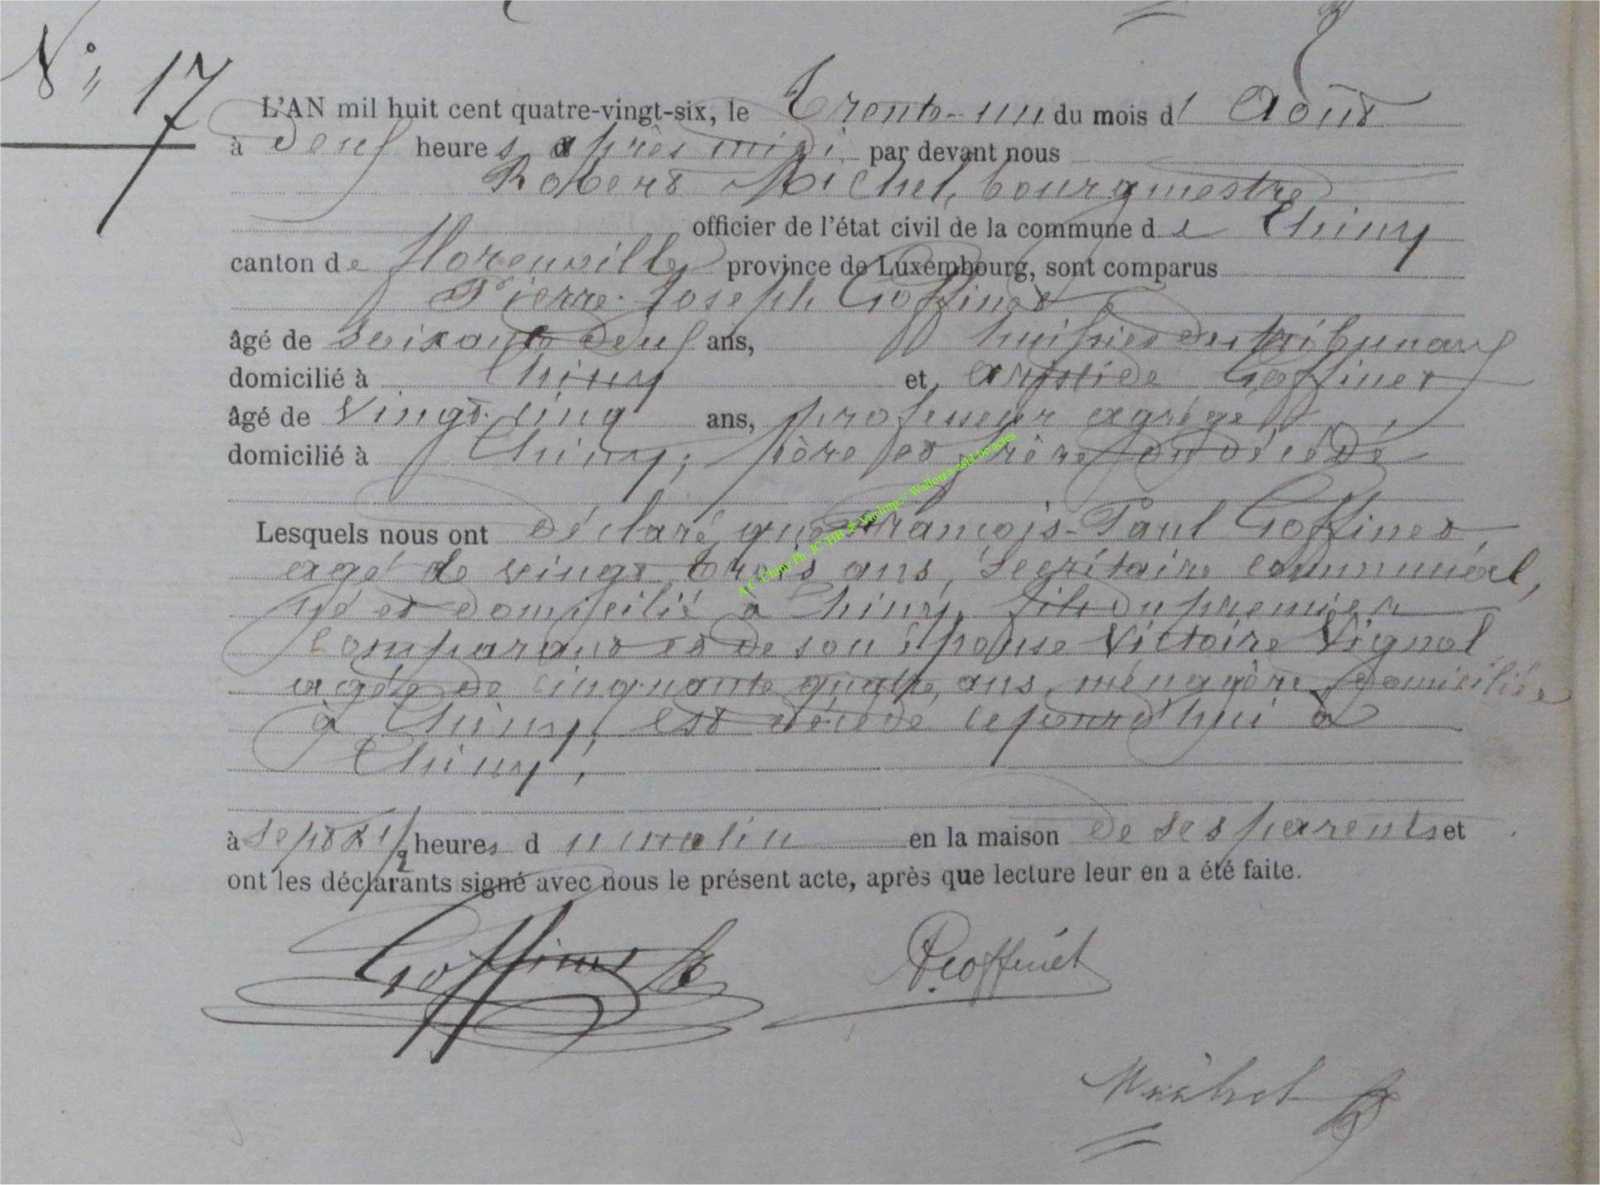 N° 17
L'AN mil huit cent quatre-vingt-six, le Trente-un du mois d' Août
à deux heures après midi par devant nous
Robert Michel, bourgmestre
officier de l'état civil de la commune de Chiny
canton de Florenville province de Luxembourg, sont comparus
Pierre-Joseph Goffinet
âgé de soixante deux ans, huissier des tribunaux
domicilié à Chiny et, Aristide Goffinet
âgé de Vingt-cinq ans, professeur agrégé,
domicilié à Chiny; père et frère du décédé
Lesquels nous ont déclaré que François-Paul Goffinet
agé de vingt trois ans, Secrétaire communal,
né et domicilié à Chiny, fils du premier
Comparant et de son épouse Victoire Vignol
agée de cinquante quatre ans, ménagère, domiciliée
à Chiny, est décédé cejourd'hui à
Chiny,
à sept et 1/2 heures du matin en la maison de ses parents et
ont les déclarants signé avec nous le présent acte, après que lecture leur en a été faite.
Goffinet
A. Goffinet
Michel